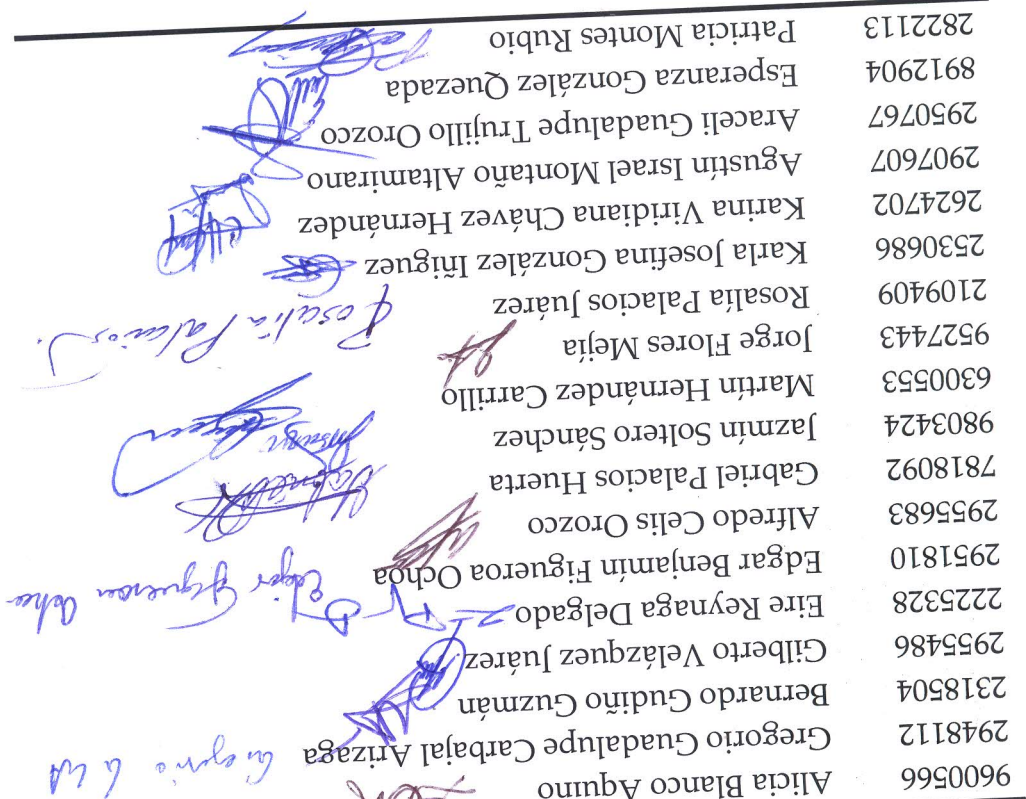 9600566 Alicia Blanco Aquino
2948112 Gregorio Guadalupe Carbajal Arizaga Gregorio
2318504 Bernardo Gudiño Guzmán
2955486 Gilberto Velázquez Juárez
2225328 Eire Reynaga Delgado
2951810 Edgar Benjamín Figueroa Ochoa Edgar Figueroa Ochoa
2955683 Alfredo Celis Orozco
7818092 Gabriel Palacios Huerta
9803424 Jazmín Soltero Sánchez
6300553 Martín Hernández Carrillo
9527443 Jorge Flores Mejía
2109409 Rosalía Palacios Juárez Rosalía Palacios J.
2530686 Karla Josefina González Iñiguez
2624702 Karina Viridiana Chávez Hernández
2907607 Agustín Israel Montaño Altamirano
2950767 Araceli Guadalupe Trujillo Orozco
8912904 Esperanza González Quezada
2822113 Patricia Montes Rubio